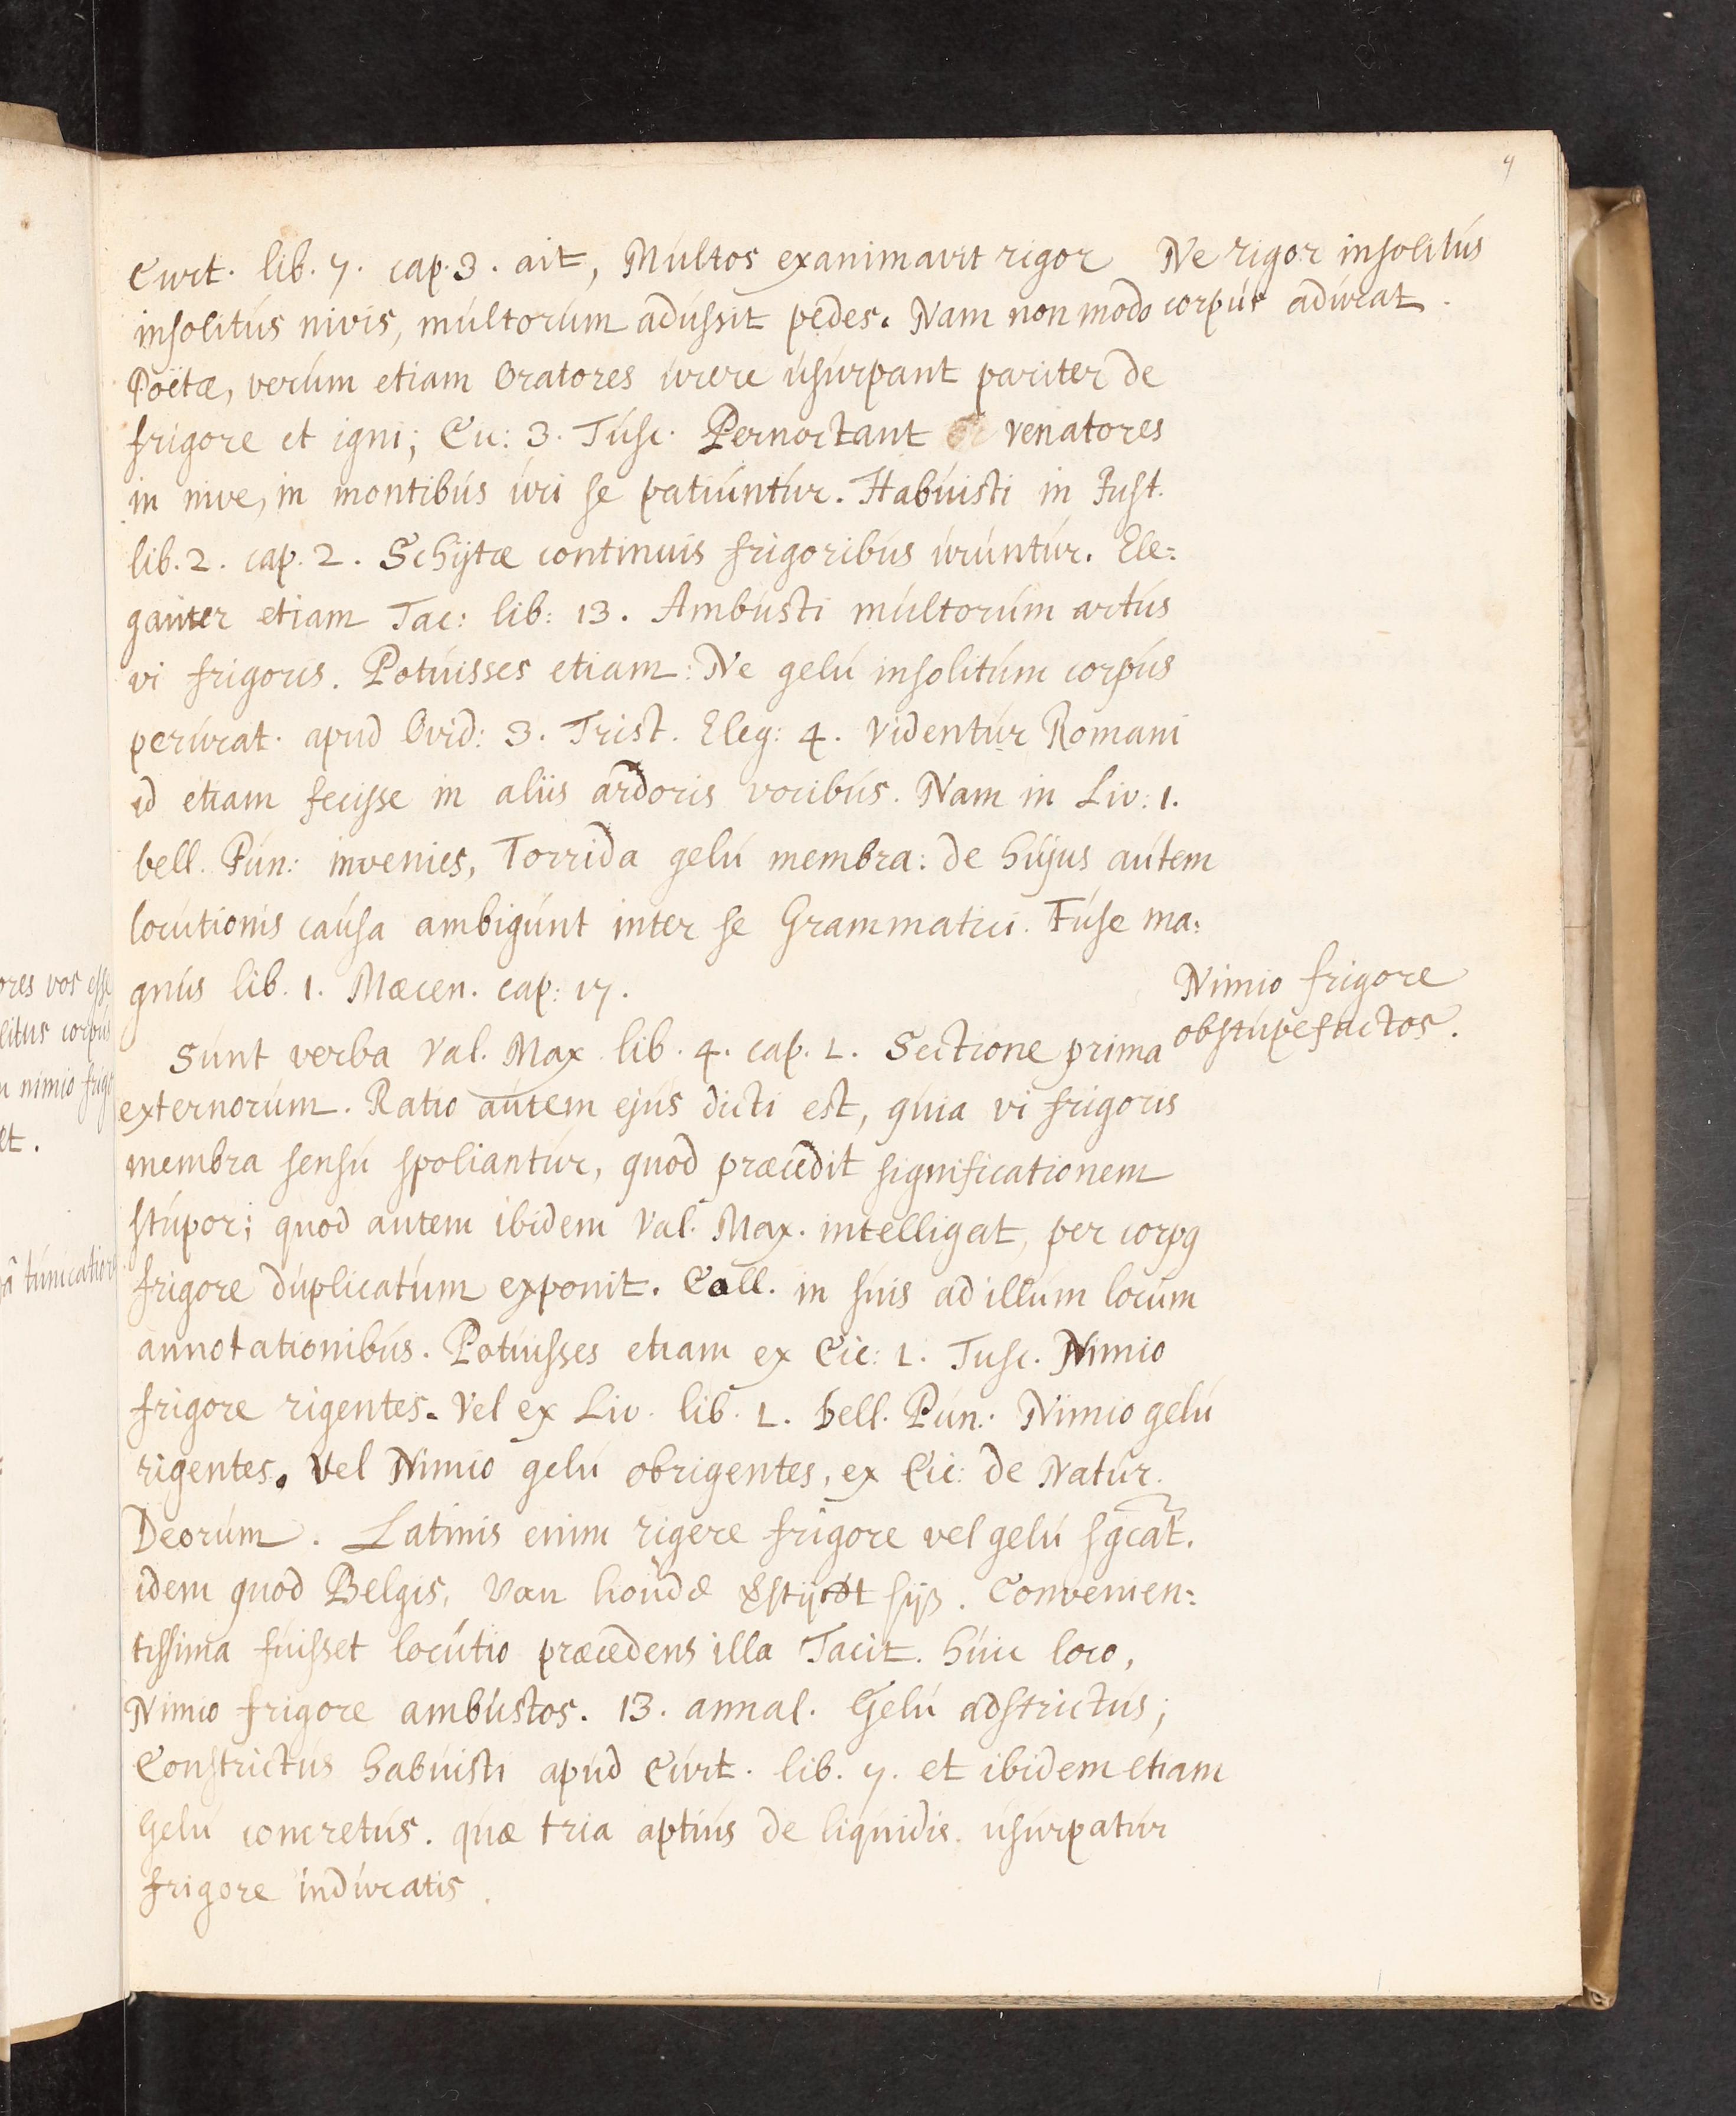 9
Curt. lib. 7. cap. 3. ait, Multos exanimavit rigor
insolitús nivis, múltorúm adússit pedes. Nam non modo
Poëtæ, verúm etiam Oratores úrere úsúrpant pariter de
frigore et igni; Cic: 3. Túsc. Pernoctant venatores
in nive, in montibús úri se patiúntúr. Habúisti in Just.
lib. 2. cap. 2. Schijtæ continuis frigoribús úrúntúr. Ele=
ganter etiam Tac: lib: 13. Ambústi múltorúm artús
vi frigoris. Potúisses etiam: Ne gelú insolitúm corpús
perúrat. apud Ovid: 3. Trist. Eleg: 4. Videntúr Romani
id etiam fecisse in aliis ardoris vocibús. Nam in Liv: 1.
bell. Pún: invenies, Torrida gelú membra: de hújus aútem
locútionis caúsa ambigúnt inter se Grammatici. Fúse ma=
gnús lib. 1. Mæcen. cap: 17.
Súnt verba Val. Max lib. 4. cap. 1. Sectione prima
externorúm. Ratio aútem ejús dicti est, quia vi frigoris
membra sensú spoliantúr, quod præcedit significationem
stúpor; quod autem ibidem Val. Max. intelligat, per corpg
frigore dúplicatúm exponit. Coll. in súis ad illúm locúm
annotationibús. Potúisses etiam ex Cic: 1. Tusc. Nimio
frigore rigentes. Vel ex Liv. lib. 1. bell. Pún: Nimio gelú
rigentes. Vel Nimio gelú obrigentes, ex Cic: de Natúr.
Deorúm. Latinis enim rigere frigore vel gelú sgcat.
idem quod Belgis, Van houde sijn. Convenien=
tissima fúisset locútio præcedens illa Tacit. húic loco,
Nimio frigore ambústos. 13. annal. Gelú adstrictus;
Constrictús habúisti apúd Cúrt. lib. 7. et ibidem etiam
Gelú concretús. quæ tria aptiús de liquidis úsúrpatúr
frigore indúratis.
Ne rigor insolitús
corpús adúrat.
Nimio frigore
obstúpefactos.
ores vos esse
litus corpús
nimio frig
et.
túnicatior